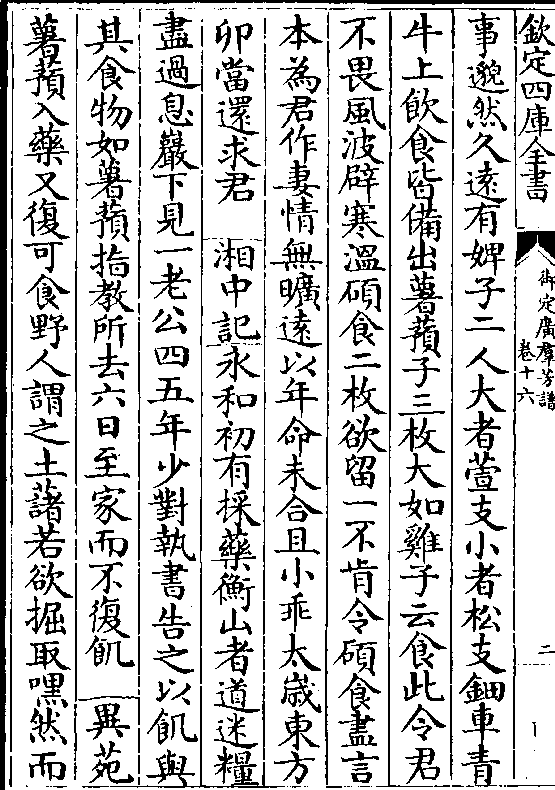 欽定四庫全書
御定廣羣芳譜
卷十六
二
事邈然久遠有婢子二人大者萱支小者松支鈿車青
牛上飲食皆備出薯蕷子三枚大如雞子云食此令君
不畏風波辟寒溫碩食二枚欲留一不肯令碩食盡言
本為君作妻情無曠遠以年命未合且小乖太歲東方
卯當還求君　湘中記永和初有採藥衡山者道迷糧
盡過息巖下見一老公四五年少對執書告之以飢與
其食物如薯蕷指教所去六日至家而不復飢　異苑
薯蕷入藥又復可食野人謂之土藷若欲掘取嘿然而